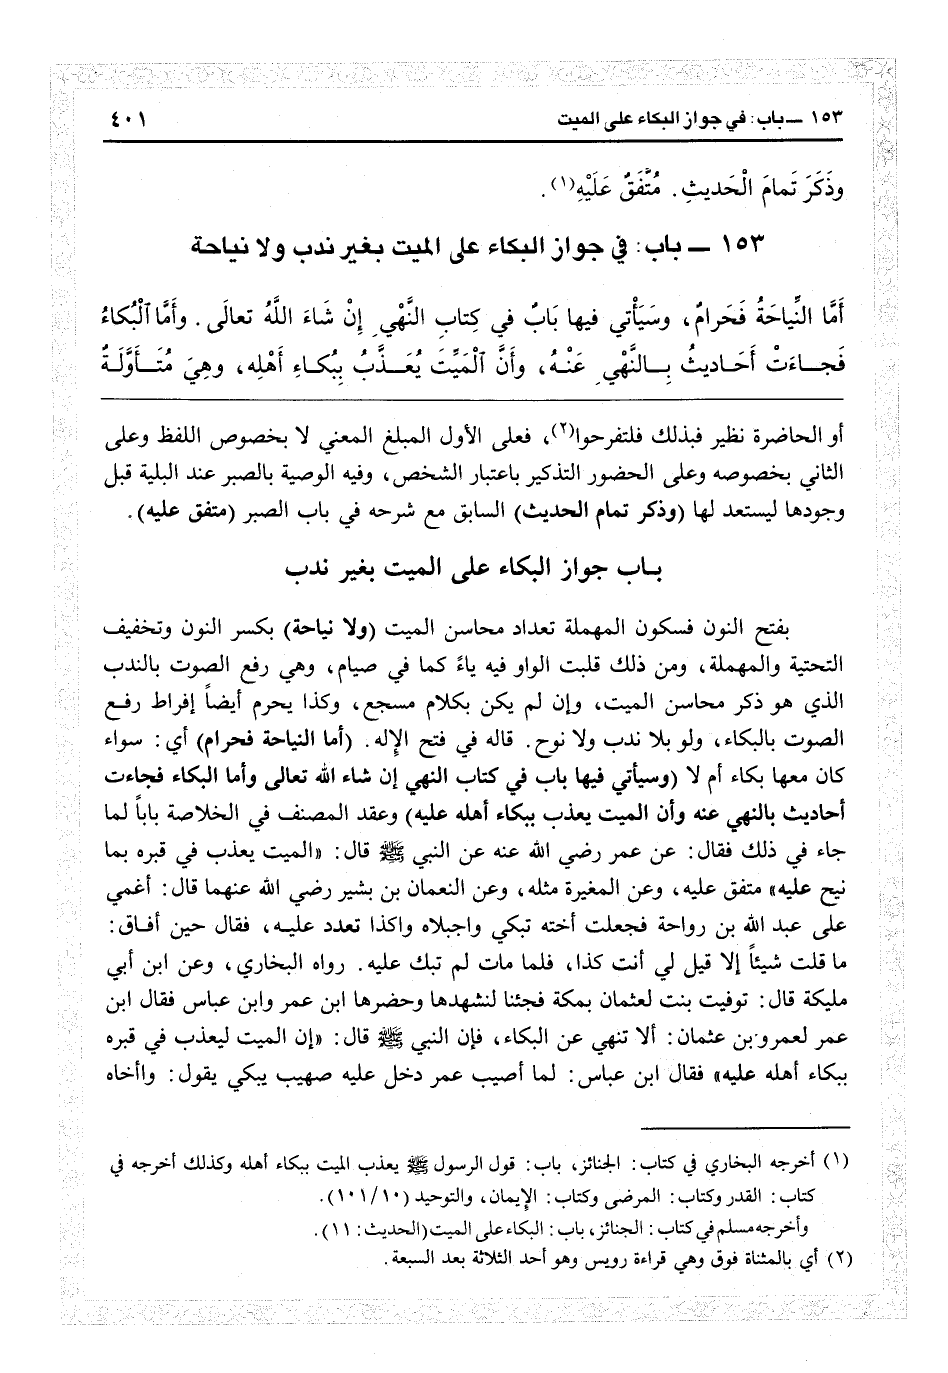 ١٥٣ ــ باب: في جواز البكاء على الميت ٤٠١
وذَكَرَ تَمامَ الْحَديثِ. مُتَّفَقٌ عَلَيْهِ(١).
١٥٣ ــ باب: في جواز البكاء على الميت بغير ندب ولا نياحة
أَمَّا النِّيَاحَةُ فَحَرامٌ، وسَيَأْتي فيها بَابٌ في كِتابِ النَّهْيِ إِنْ شَاءَ اللَّهُ تعالَى. وأَمَّا ٱلْبُكاءُ
فَجـاءَتْ أَحَـاديثُ بِـالنَّهْيِ عَنْـهُ، وأَنَّ ٱلْمَيِّتَ يُعَـذَّبُ بِبُكـاءِ أَهْلِه، وهِيَ مُتَـأَوَّلَـةٌ
أو الحاضرة نظير فبذلك فلتفرحوا(٢)، فعلى الأول المبلغ المعني لا بخصوص اللفظ وعلى
الثاني بخصوصه وعلى الحضور التذكير باعتبار الشخص، وفيه الوصية بالصبر عند البلية قبل
وجودها ليستعد لها (وذكر تمام الحديث) السابق مع شرحه في باب الصبر (متفق عليه).
بـاب جواز البكاء على الميت بغير ندب
بفتح النون فسكون المهملة تعداد محاسن الميت (ولا نياحة) بكسر النون وتخفيف
التحتية والمهملة، ومن ذلك قلبت الواو فيه ياءً كما في صيام، وهي رفع الصوت بالندب
الذي هو ذكر محاسن الميت، وإن لم يكن بكلام مسجع، وكذا يحرم أيضاً إفراط رفـع
الصوت بالبكاء، ولو بلا ندب ولا نوح. قاله في فتح الإله. (أما النياحة فحرام) أي: سواء
كان معها بكاء أم لا (وسيأتي فيها باب في كتاب النهي إن شاء الله تعالى وأما البكاء فجاءت
أحاديث بالنهي عنه وأن الميت يعذب ببكاء أهله عليه) وعقد المصنف في الخلاصة باباً لما
جاء في ذلك فقال: عن عمر رضي الله عنه عن النبي ﷺ قال: «الميت يعذب في قبره بما
نيح عليه» متفق عليه، وعن المغيرة مثله، وعن النعمان بن بشير رضي الله عنهما قال: أغمي
على عبد الله بن رواحة فجعلت أخته تبكي واجبلاه واكذا تعدد عليـه، فقال حين أفـاق:
ما قلت شيئاً إلا قيل لي أنت كذا، فلما مات لم تبك عليه. رواه البخاري، وعن ابن أبي
مليكة قال: توفيت بنت لعثمان بمكة فجئنا لنشهدها وحضرها ابن عمر وابن عباس فقال ابن
عمر لعمرو بن عثمان: ألا تنهي عن البكاء، فإن النبي ﷺ قال: «إن الميت ليعذب في قبره
ببكاء أهله عليه» فقال ابن عباس: لما أصيب عمر دخل عليه صهيب يبكي يقول: واأخاه
(١) أخرجه البخاري في كتاب: الجنائز، باب: قول الرسول ﷺ يعذب الميت ببكاء أهله وكذلك أخرجه في
كتاب: القدر وكتاب: المرضى وكتاب: الإيمان، والتوحيد (١٠١/١٠).
وأخرجه مسلم في كتاب: الجنائز، باب: البكاء على الميت (الحديث: ١١).
(٢) أي بالمثناة فوق وهي قراءة رويس وهو أحد الثلاثة بعد السبعة.